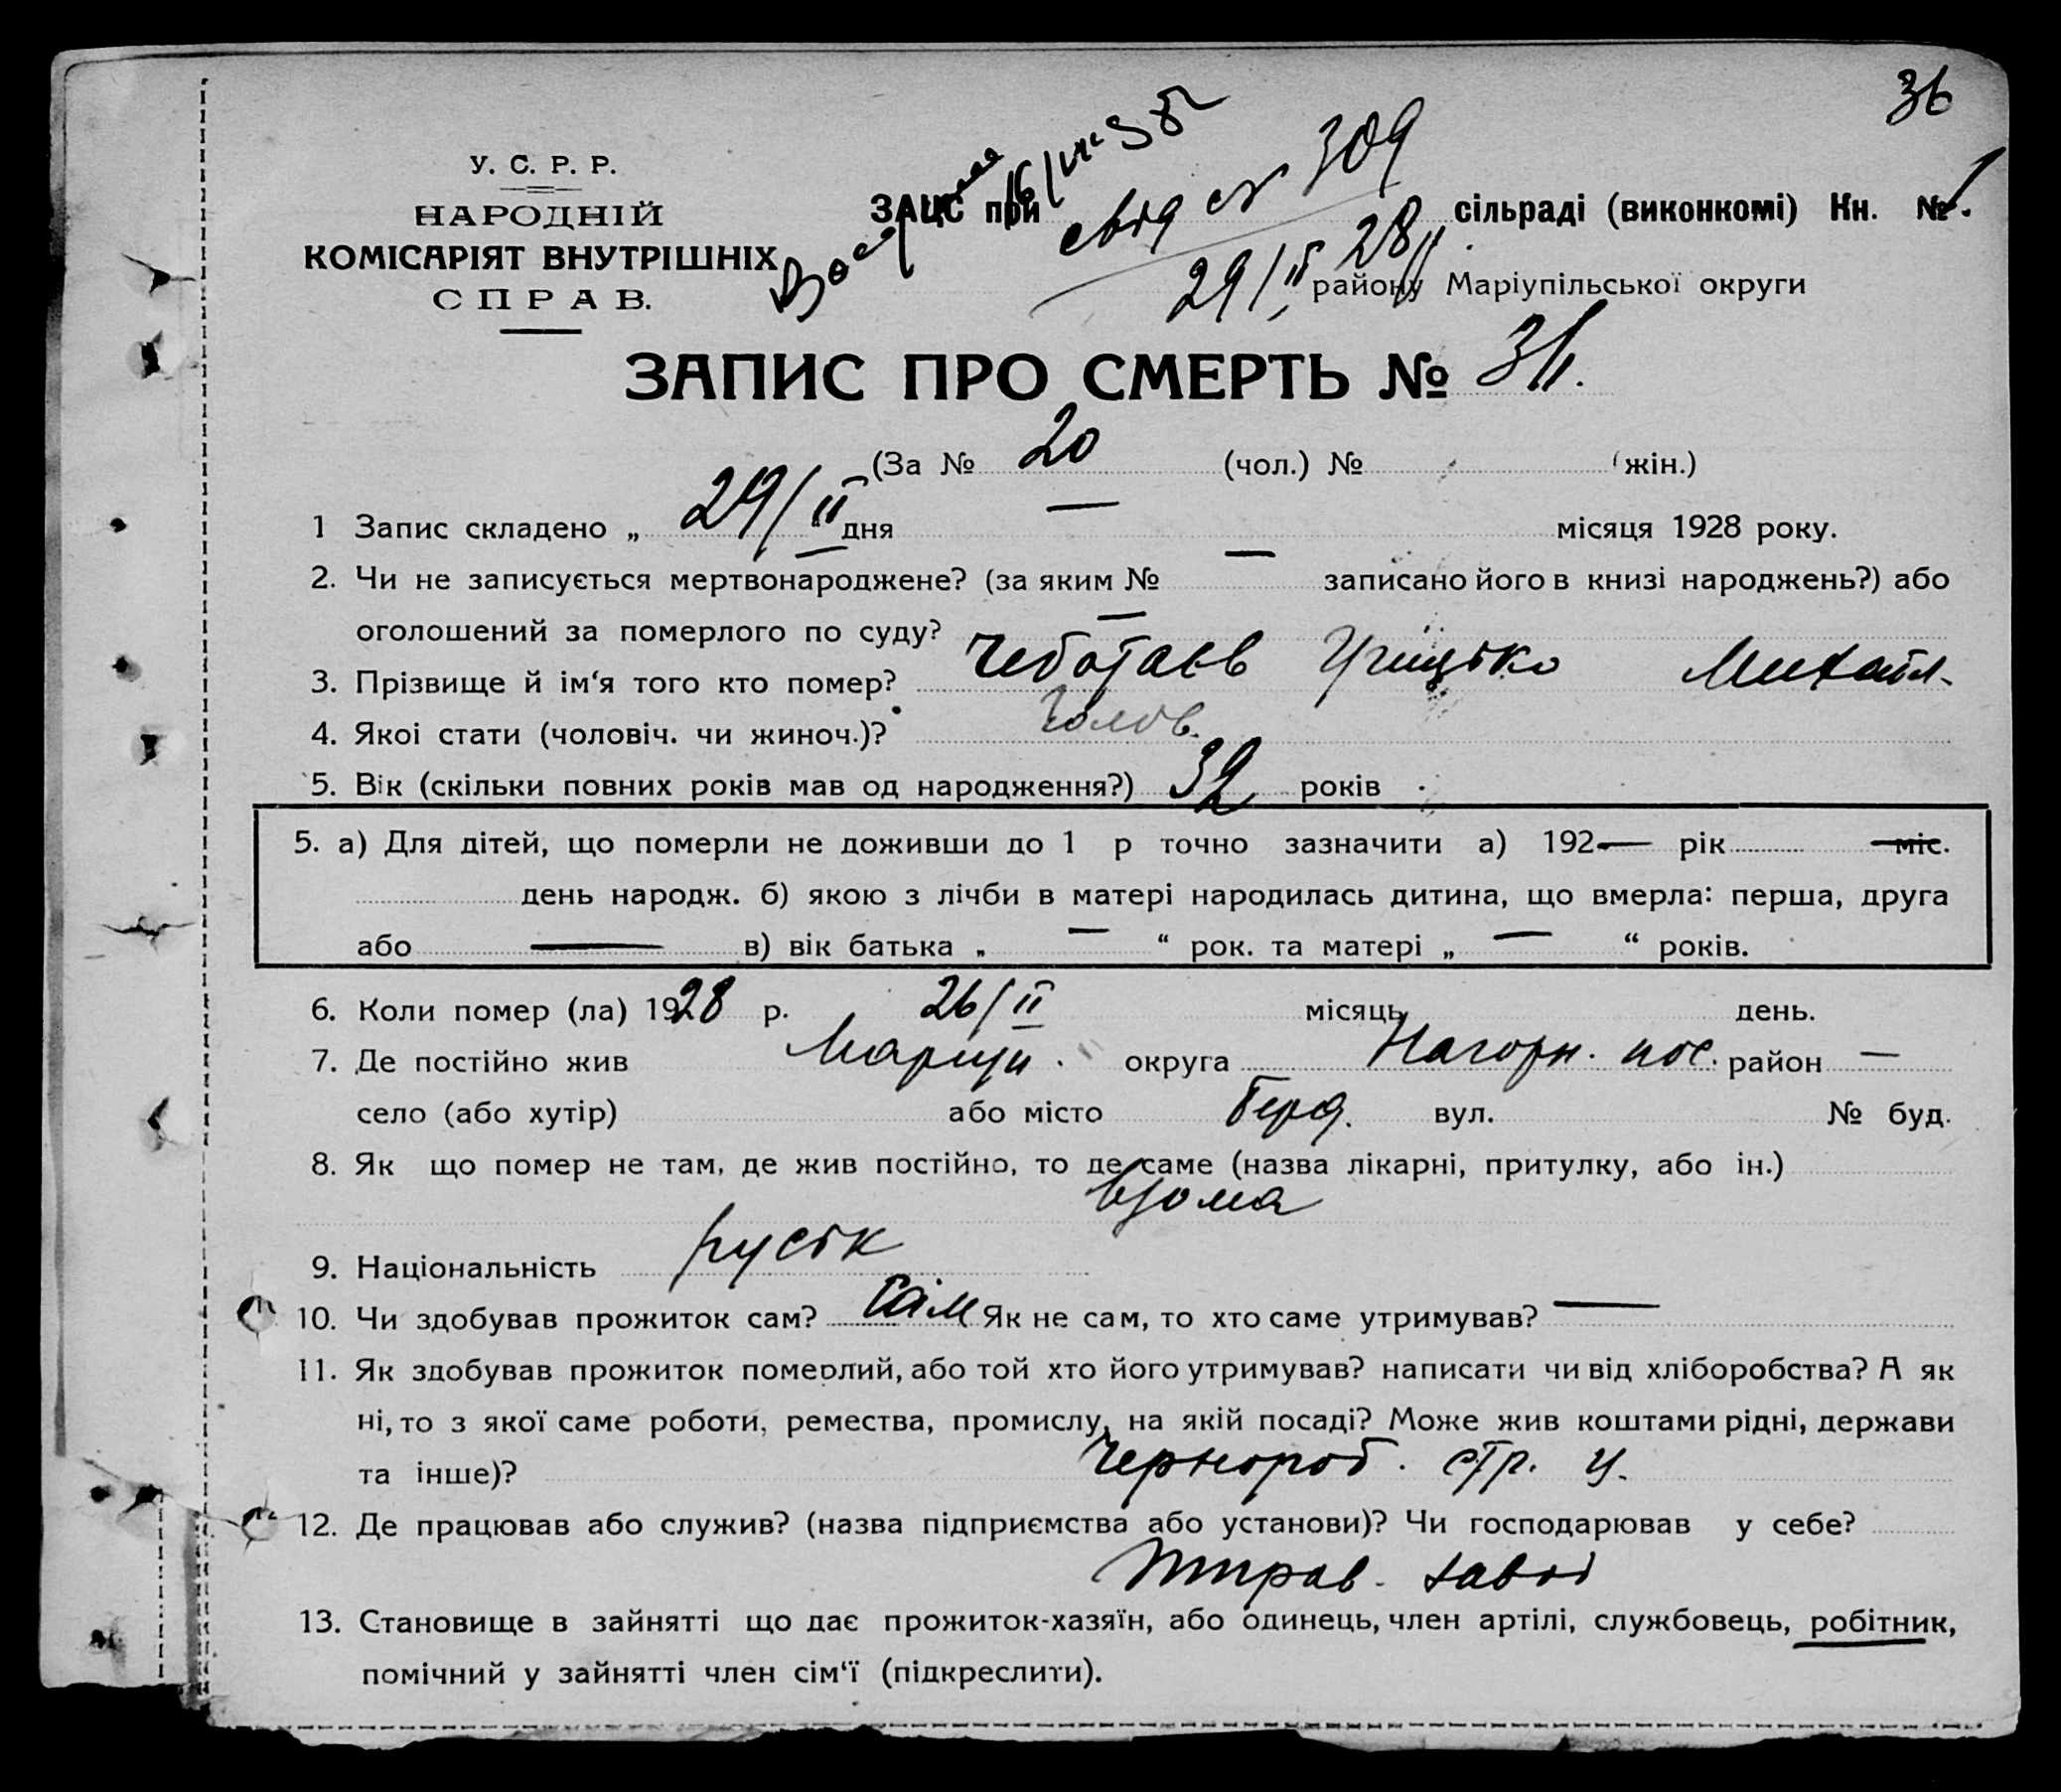 36
У. С. Р. Р.
НАРОДНІЙ
КОМІСАРІЯТ ВНУТРІШНІХ
СПРАВ.
ЗАЦС при сільраді (виконкомі) Кн. № 1.
309
29/II 28
району Маріупільської округи
ЗАПИС ПРО СМЕРТЬ № 36.
(За № 20 (чол.) № (жін.)
1 Запис складено „ 29/II дня — місяця 1928 року.
2. Чи не записується мертвонароджене? (за яким № — записано його в книзі народжень?) або
оголошений за померлого по суду? —
3. Прізвище й ім‘я того кто помер? Чеботаєв Грицько Михайл.
4. Якоі стати (чоловіч. чи жиноч.)? Чолов.
5. Вік (скільки повних років мав од народження?) 32 років
5. а) Для дітей, що померли не доживши до 1 р точно зазначити а) 192— рік міс.
день народж. б) якою з лічби в матері народилась дитина, що вмерла: перша, друга
або — в) вік батька „ — “ рок. та матері „ — “ років.
6. Коли помер (ла) 1928 р. 26/II місяць день.
7. Де постійно жив Мариуп. округа Нагорн. пос. район —
село (або хутір) або місто Берд. вул. № буд.
8. Як що помер не там, де жив постійно, то де саме (назва лікарні, притулку, або ін.)
вдома
9. Національність руськ
10. Чи здобував прожиток сам? сам Як не сам, то хто саме утримував? —
11. Як здобував прожиток померлий, або той хто його утримував? написати чи від хліборобства? А як
ні, то з якої саме роботи, ремества, промислу, на якій посаді? Може жив коштами рідні, держави
та інше)? Чернороб. стр. ц.
12. Де працював або служив? (назва підприємства або установи)? Чи господарював у себе?
завод
13. Становище в зайнятті що дає прожиток-хазяїн, або одинець, член артілі, службовець, робітник,
помічний у зайнятті член сім‘ї (підкреслити).